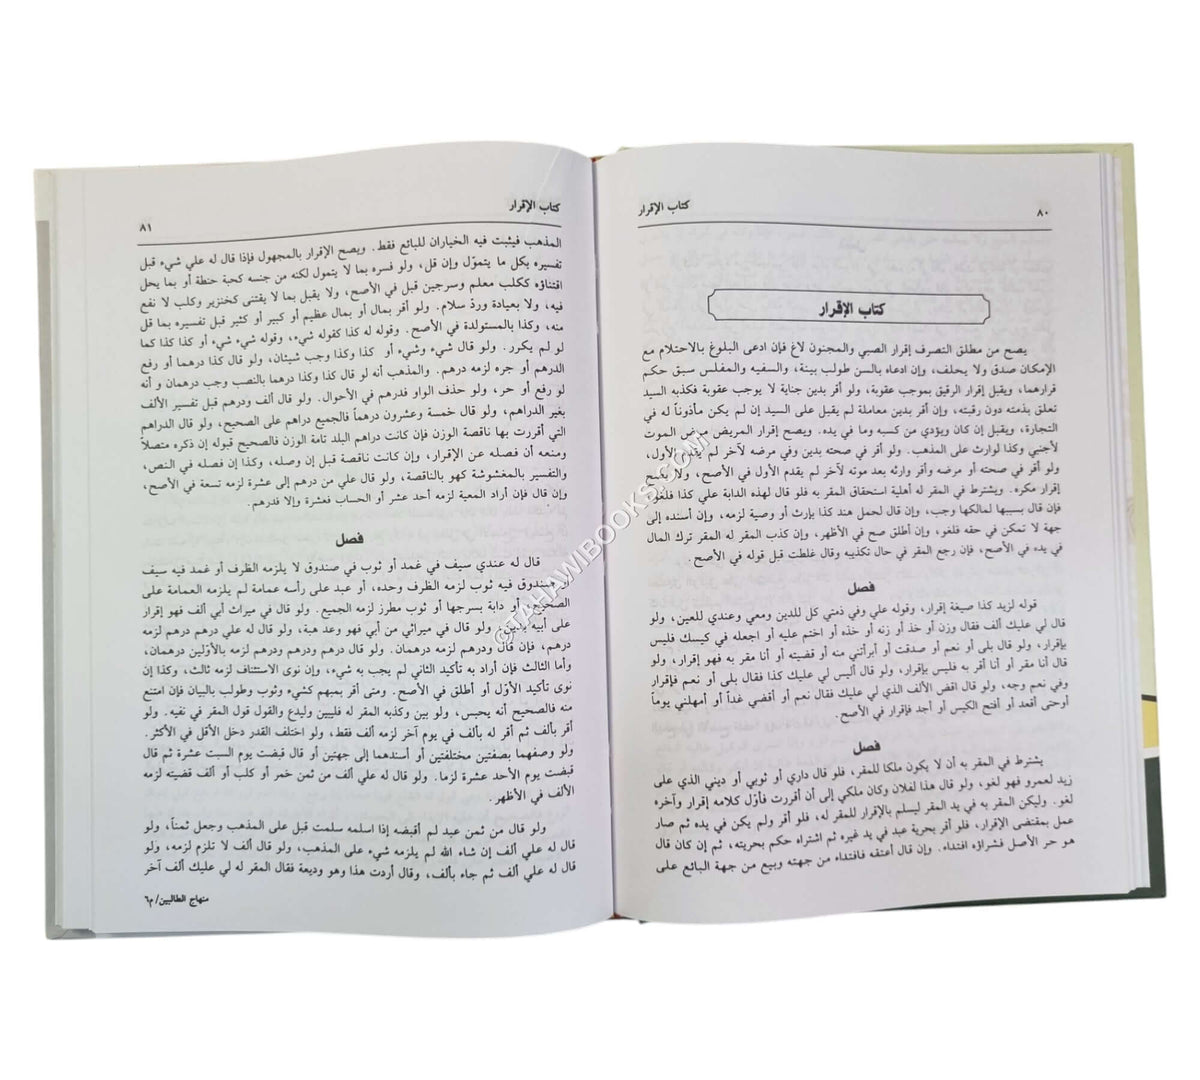 ٨٠
كتاب الإقرار
كتاب الإقرار
يصح من مطلق التصرف إقرار الصبي والمجنون لاغ فإن ادعى البلوغ بالاحتلام مع
الإمكان صدق ولا يحلف، وإن ادعاه بالسن طولب ببينة، والسفيه والمفلس سبق حكم
قرارهما، ويقبل إقرار الرقيق بموجب عقوبة، ولو أقر بدين جناية لا يوجب عقوبة فكذبه السيد
تعلق بذمته دون رقبته، وإن أقر بدين معاملة لم يقبل على السيد إن لم يكن مأذوناً له في
التجارة، ويقبل إن كان ويؤدي من كسبه وما في يده. ويصح إقرار المريض مرض الموت
لأجنبي وكذا لوارث على المذهب. ولو أقر في صحته بدين وفي مرضه لآخر لم يقدم الأول،
ولو أقر في صحته أو مرضه وأقر وارثه بعد موته لآخر لم يقدم الأول في الأصح، ولا يصح
إقرار مكره. ويشترط في المقر له أهلية استحقاق المقر به فلو قال لهذه الدابة علي كذا فلغو،
فإن قال بسببها لمالكها وجب، وإن قال لحمل هند كذا بإرث أو وصية لزمه، وإن أسنده إلى
جهة لا تمكن في حقه فلغو، وإن أطلق صح في الأظهر، وإن كذب المقر له المقر ترك المال
في يده في الأصح، فإن رجع المقر في حال تكذيبه وقال غلطت قبل قوله في الأصح.
فصل
قوله لزيد كذا صيغة إقرار، وقوله علي وفي ذمتي كل للدين ومعي وعندي للعين، ولو
قال لي عليك ألف فقال وزن أو خذ أو زنه أو خذه أو اختم عليه أو اجعله في كيسك فليس
بإقرار، ولو قال بلى أو نعم أو صدقت أو أبرأتني منه أو قضيته أو أنا مقر به فهو إقرار، ولو
قال أنا مقر أو أنا أقر به فليس بإقرار، ولو قال أليس لي عليك كذا فقال بلى أو نعم فإقرار
وفي نعم وجه، ولو قال اقض الألف الذي لي عليك فقال نعم أو أقضي غداً أو أمهلني يوماً
أوحتى أقعد أو أفتح الكيس أو أجد فإقرار في الأصح.
فصل
يشترط في المقر به أن لا يكون ملكا للمقر، فلو قال داري أو ثوبي أو ديني الذي على
زيد لعمرو فهو لغو، ولو قال هذا لفلان وكان ملكي إلى أن أقررت فأوّل كلامه إقرار وآخره
لغو. وليكن المقر به في يد المقر ليسلم بالإقرار للمقر له، فلو أقر ولم يكن في يده ثم صار
عمل بمقتضى الإقرار، فلو أقر بحرية عبد في يد غيره ثم اشتراه حكم بحريته، ثم إن كان قال
هو حر الأصل فشراؤه افتداء. وإن قال أعتقه فافتداء من جهته وبيع من جهة البائع على
كتاب الإقرار
٨١
المذهب فيثبت فيه الخياران للبائع فقط. ويصح الإقرار بالمجهول فإذا قال له علي شيء قبل
تفسيره بكل ما يتموّل وإن قل، ولو فسره بما لا يتمول لكنه من جنسه كحبة حنطة أو بما يحل
اقتناؤه ككلب معلم وسرجين قبل في الأصح، ولا يقبل بما لا يقتنى كخنزير وكلب لا نفع
فيه، ولا بعيادة وردّ سلام. ولو أقر بمال أو بمال عظيم أو كبير أو كثير قبل تفسيره بما قل
منه، وكذا بالمستولدة في الأصح. وقوله له كذا كقوله شيء، وقوله شيء شيء أو كذا كذا كما
لو لم يكرر. ولو قال شيء وشيء أو كذا وكذا وجب شيئان، ولو قال كذا درهما أو رفع
الدرهم أو جره لزمه درهم. والمذهب أنه لو قال كذا وكذا درهما بالنصب وجب درهمان و أنه
لو رفع أو جر، ولو حذف الواو فدرهم في الأحوال. ولو قال ألف ودرهم قبل تفسير الألف
بغير الدراهم، ولو قال خمسة وعشرون درهماً فالجميع دراهم على الصحيح، ولو قال الدراهم
التي أقررت بها ناقصة الوزن فإن كانت دراهم البلد تامة الوزن فالصحيح قبوله إن ذكره متصلاً
ومنعه أن فصله عن الإقرار، وإن كانت ناقصة قبل إن وصله، وكذا إن فصله في النص،
والتفسير بالمغشوشة كهو بالناقصة، ولو قال علي من درهم إلى عشرة لزمه تسعة في الأصح،
وإن قال فإن أراد المعية لزمه أحد عشر أو الحساب فعشرة وإلا فدرهم.
فصل
قال له عندي سيف في غمد أو ثوب في صندوق لا يلزمه الظرف أو غمد فيه سيف
أو صندوق فيه ثوب لزمه الظرف وحده، أو عبد على رأسه عمامة لم يلزمه العمامة على
الصحيح، أو دابة بسرجها أو ثوب مطرز لزمه الجميع. ولو قال في ميراث أبي ألف فهو إقرار
على أبيه بدين، ولو قال في ميراثي من أبي فهو وعد هبة، ولو قال له علي درهم درهم لزمه
درهم، فإن قال ودرهم لزمه درهمان. ولو قال درهم ودرهم ودرهم لزمه بالأوّلين درهمان،
وأما الثالث فإن أراد به تأكيد الثاني لم يجب به شيء، وإن نوى الاستئناف لزمه ثالث، وكذا إن
نوى تأكيد الأوّل أو أطلق في الأصح. ومتى أقر بمبهم كشيء وثوب وطولب بالبيان فإن امتنع
منه فالصحيح أنه يحبس، ولو بين وكذبه المقر له فليبين وليدع والقول قول المقر في نفيه. ولو
أقر بألف ثم أقر له بألف في يوم آخر لزمه ألف فقط، ولو اختلف القدر دخل الأقل في الأكثر.
ولو وصفهما بصفتين مختلفتين أو أسندهما إلى جهتين أو قال قبضت يوم السبت عشرة ثم قال
قبضت يوم الأحد عشرة لزما. ولو قال له علي ألف من ثمن خمر أو كلب أو ألف قضيته لزمه
الألف في الأظهر.
ولو قال من ثمن عبد لم أقبضه إذا اسلمه سلمت قبل على المذهب وجعل ثمناً، ولو
قال له علي ألف إن شاء الله لم يلزمه شيء على المذهب، ولو قال ألف لا تلزم لزمه، ولو
قال له علي ألف ثم جاء بألف، وقال أردت هذا وهو وديعة فقال المقر له لي عليك ألف آخر
منهاج الطالبين/ م٦
©TAHAWIBOOKS.COM